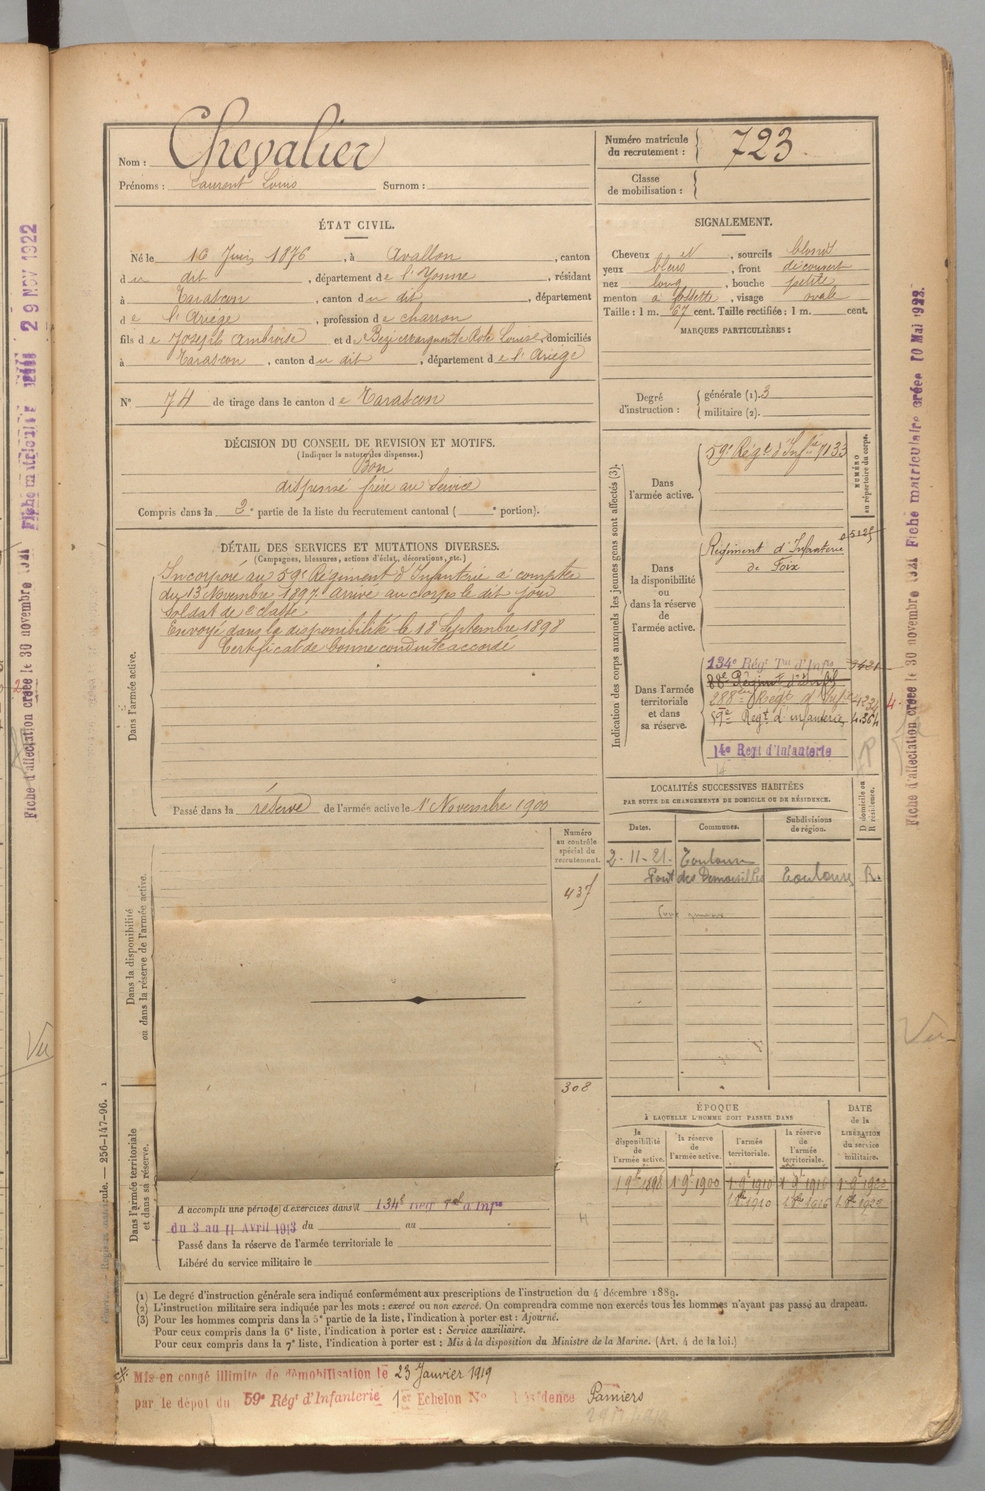 Nom : Chevalier
Prénoms : Laurent Louis Surnom :
Numéro matricule du recrutement : 723
Classe de mobilisation :
ÉTAT CIVIL.
Né le 16 Juin 1876, à Avallon, canton
du dit, département de l'Yonne, résidant
à Tarascon, canton du dit, département
de l'Ariège, profession de charron
fils de Joseph Ambroise et de Marguerite Louise, domiciliés
à Tarascon, canton du dit, département de l'Ariège
N° 74 de tirage dans le canton de Tarascon
SIGNALEMENT.
Cheveux et, sourcils blonds
yeux bleus, front découvert
nez long, bouche petite
menton à fossette, visage ovale
Taille : 1 m. 67 cent. Taille rectifiée : 1 m. cent.
MARQUES PARTICULIÈRES :
Degré d'instruction : générale (1). 3
militaire (2).
DÉCISION DU CONSEIL DE REVISION ET MOTIFS.
(Indiquer la nature des dispenses.)
Bon
dispensé frère au service
Compris dans la 2e partie de la liste du recrutement cantonal ( e portion).
DÉTAIL DES SERVICES ET MUTATIONS DIVERSES.
(Campagnes, blessures, actions d'éclat, décorations, etc.)
Dans l'armée active.
Incorporé au 59e Régiment d'Infanterie à compter
du 13 Novembre 1897 arrivé au corps le dit jour
soldat de 2e classe
Envoyé dans la disponibilité le 18 Septembre 1898
Certificat de bonne conduite accordé
Passé dans la réserve de l'armée active le 1er Novembre 1900
Indication des corps auxquels les jeunes gens sont affectés (3).
NUMÉRO au répertoire du corps.
Dans l'armée active.
59e Régt d'Infrie 7133
Dans la disponibilité ou dans la réserve de l'armée active.
Régiment d'Infanterie
de Foix
Dans l'armée territoriale et dans sa réserve.
134e Régt Tal d'Infie
88e Régiment d'Infie
288e Régt d'Infie
59e Regt d'infanterie
14e Regt d'Infanterie
LOCALITÉS SUCCESSIVES HABITÉES
PAR SUITE DE CHANGEMENTS DE DOMICILE OU DE RÉSIDENCE.
Dates. Communes. Subdivisions de région. D domicile ou R résidence.
2-11-21. Toulouse
Pont des Demoiselles Toulouse R.
Dans la disponibilité ou dans la réserve de l'armée active.
Numéro au contrôle spécial du recrutement.
437
308
Dans l'armée territoriale et dans sa réserve.
A accompli une période d'exercices dans le 134e Rég Tal d'Infie
du 3 au 11 Avril 1913 du au
Passé dans la réserve de l'armée territoriale le
Libéré du service militaire le
ÉPOQUE
À LAQUELLE L'HOMME DOIT PASSER DANS
la disponibilité de l'armée active. la réserve de l'armée active. l'armée territoriale. la réserve de l'armée territoriale.
DATE de la LIBÉRATION du service militaire.
1 9bre 1898 1 9bre 1900 1 9bre 1910 1 9bre 1916 1 9bre 1922
(1) Le degré d'instruction générale sera indiqué conformément aux prescriptions de l'instruction du 4 décembre 1889.
(2) L'instruction militaire sera indiquée par les mots : exercé ou non exercé. On comprendra comme non exercés tous les hommes n'ayant pas passé au drapeau.
(3) Pour les hommes compris dans la 5e partie de la liste, l'indication à porter est : Ajourné.
Pour ceux compris dans la 6e liste, l'indication à porter est : Service auxiliaire.
Pour ceux compris dans la 7e liste, l'indication à porter est : Mis à la disposition du Ministre de la Marine. (Art. 4 de la loi.)
Mis en congé illimité de démobilisation le 23 Janvier 1919
par le dépôt du 59e Régt d'Infanterie 1er Echelon N° Résidence Pamiers
256-147-96.
Fiche d'affectation créée le 30 novembre 1921 Fiche matriculaire créée 10 Mai 1923.
Fiche d'affectation créée le 30 novembre 1921 Fiche matricule 29 NOV 1922
Vu
Vu